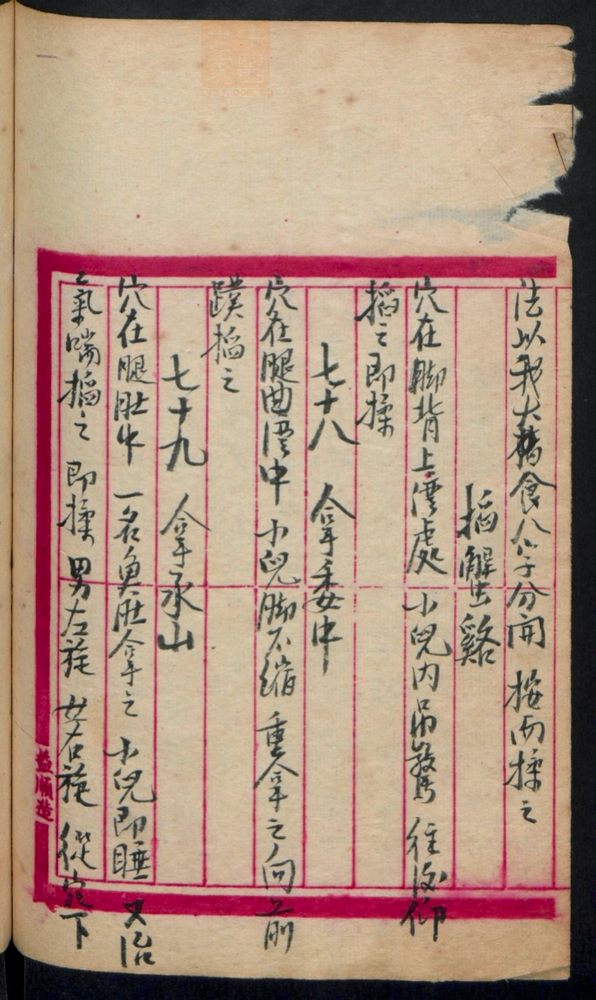 法以我大指食八字分開 按而揉之
掐解蟹谿
穴在脚背上灣處 小兒內吊驚 往後仰
掐之即揉
七十八 拿委中
穴在腿曲灣中 小兒脚不縮 重拿之向前
蹼掐之
七十九 拿承山
穴在腿肚中 一名魚肚拿之 小兒即睡 又治
氣喘掐之 即揉 男左旋 女右旋 從 下
益順造